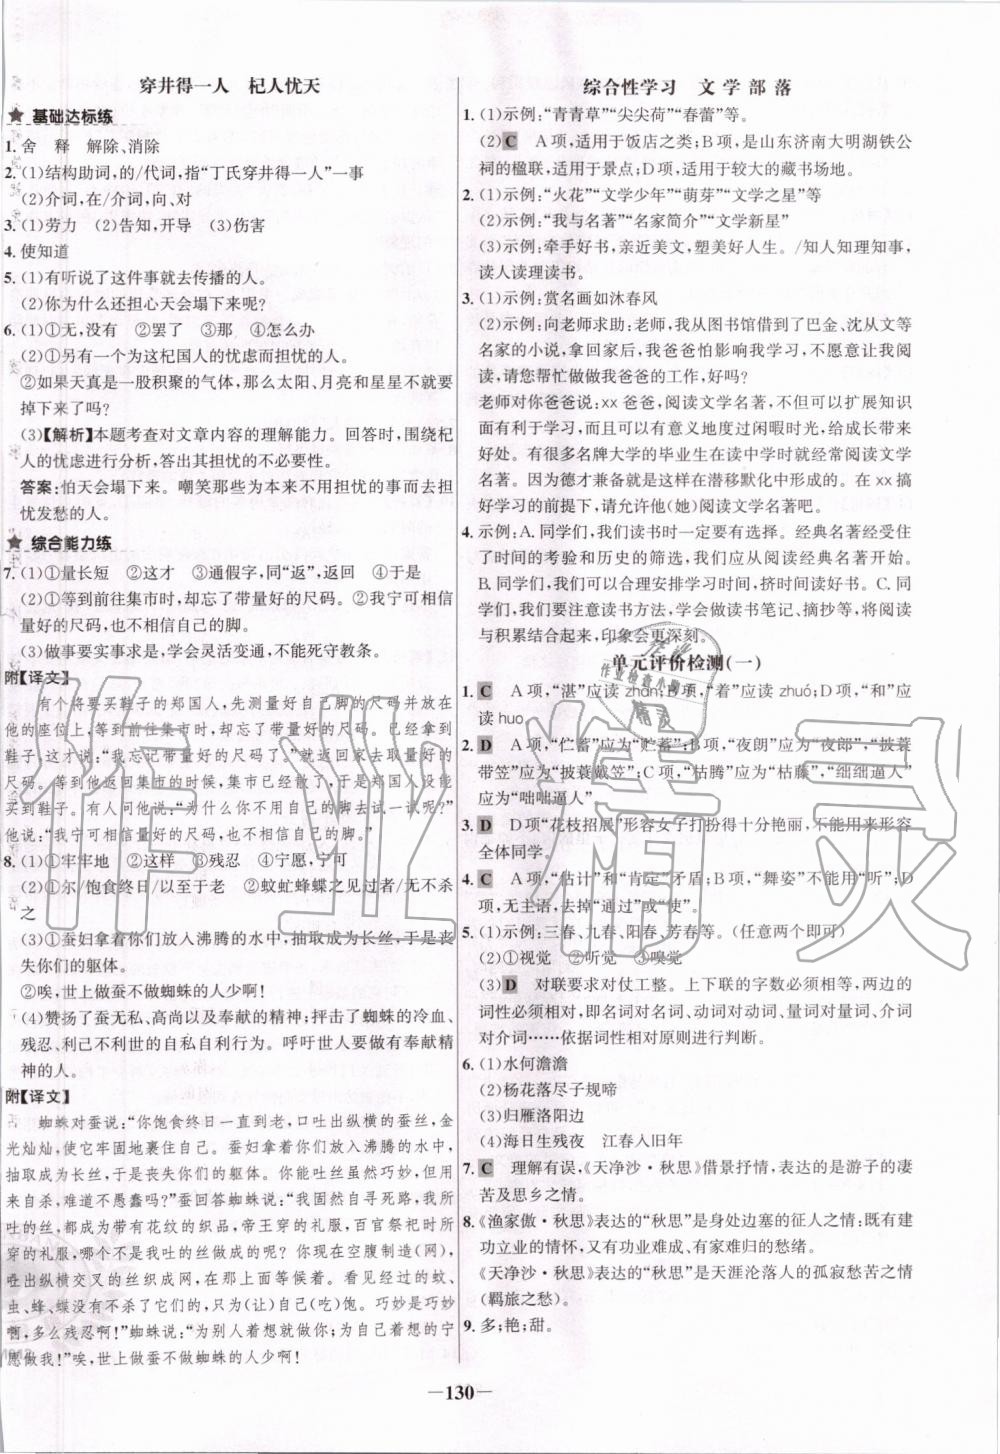 穿井得一人　杞人忧天
★ 基础达标练
1. 舍　释　解除、消除
2. (1)结构助词,的/代词,指“丁氏穿井得一人”一事
(2)介词,在/介词,向、对
3. (1)劳力　(2)告知,开导　(3)伤害
4. 使知道
5. (1)有听说了这件事就去传播的人。
(2)你为什么还担心天会塌下来呢?
6. (1)①无,没有　②罢了　③那　④怎么办
(2)①另有一个为这杞国人的忧虑而担忧的人。
②如果天真是一股积聚的气体,那么太阳、月亮和星星不就要
掉下来了吗?
(3)【解析】本题考查对文章内容的理解能力。回答时,围绕杞
人的忧虑进行分析,突出其担忧的不必要性。
答案:怕天会塌下来。嘲笑那些为本来不用担忧的事而去担
忧发愁的人。
★ 综合能力练
7. (1)①量长短　②这才　③通假字,同“返”,返回　④于是
(2)①等到前往集市时,却忘了带量好的尺码。②我宁可相信
量好的尺码,也不相信自己的脚。
(3)做事要实事求是,学会灵活变通,不能死守教条。
附【译文】
有个将要买鞋子的郑国人,先测量好自己脚的尺码并放在
他的座位上,等到前往集市时,却忘了带量好的尺码。已经拿到
鞋子,这才说:“我忘记带量好的尺码了。”就返回家去取量好的
尺码。等到他返回集市的时候,集市已经散了,于是郑国人没能
买到鞋子。有人问他说:“为什么你不用自己的脚去试一试呢?”
他说:“我宁可相信量好的尺码,也不相信自己的脚。”
8. (1)①牢牢地　②这样　③残忍　④宁愿,宁可
(2)①尔/饱食终日/以至于老　②蚊虻蜂蝶之见过者/无不杀
之
(3)①蚕妇拿着你们放入沸腾的水中,抽取成为长丝,于是丧
失你们的躯体。
②唉,世上做蚕不做蜘蛛的人少啊!
(4)赞扬了蚕无私、高尚以及奉献的精神;抨击了蜘蛛的冷血、
残忍、利己不利世的自私自利行为。呼吁世人要做有奉献精
神的人。
附【译文】
蜘蛛对蚕说:“你饱食终日一直到老,口吐出纵横的蚕丝,金
光灿灿,使它牢固地裹住自己。蚕妇拿着你们放入沸腾的水中,
抽取成为长丝,于是丧失你们的躯体。你能吐丝虽然巧妙,但用
来自杀,难道不愚蠢吗?”蚕回答蜘蛛说:“我固然自寻死路,我所
吐的丝,都成为带有花纹的织品,帝王穿的礼服,百官祭祀时所
穿的礼服,哪个不是我吐的丝做成的呢? 你现在空腹制造(网),
吐出纵横交叉的丝织成网,在里面坐着等候着。看见经过的蚊、
虫、蜂、蝶没有不杀了它们的,只为(让)自己(吃)饱。巧妙是巧妙
啊,多么残忍啊!”蜘蛛说:“为别人着想就做你,为自己着想的宁
愿做我!”唉,世上做蚕不做蜘蛛的人少啊!
综合性学习　文学部落
1. (1)示例:“青青草”“尖尖荷”“春蕾”等。
(2)C　A项,适用于饭店之类;B项,是山东济南大明湖铁公
祠的楹联,适用于景点;D项,适用于较大的藏书场地。
2. (1)示例:“火花”“文学少年”“萌芽”“文学之星”等
(2)示例:“我与名著”“名家简介”“文学新星”
(3)示例:牵手好书,亲近美文,塑美好人生。/知人知理知事,
读人读理读书。
3. (1)示例:赏名画如沐春风
(2)示例:向老师求助:老师,我从图书馆借到了巴金、沈从文等
名家的小说,拿回家后,我爸爸怕影响我学习,不愿意让我阅
读,请您帮忙做做我爸爸的工作,好吗?
老师对你爸爸说:xx爸爸,阅读文学名著,不但可以扩展知识
面而有利于学习,而且可以有意义地度过闲暇时光,给成长带来
好处。有很多名牌大学的毕业生在读中学时就常阅读文学
名著。因为德才兼备就是在潜移默化中形成的。在xx搞
好学习的前提下,请允许他(她)阅读文学名著吧。
4. 示例:A. 同学们,我们读书时一定要有选择。经典名著经受住
了时间的考验和历史的筛选,我们应从阅读经典名著开始。
B. 同学们,我们可以合理安排学习时间,挤时间读好书。C. 同
学们,我们要注意读书方法,学会做读书笔记、摘抄等,将阅读
与积累结合起来,印象会更深刻。
单元评价检测(一)
1. C　A项,“湛”应读zhàn;B项,“着”应读zhuó;D项,“和”应
读huo。
2. D　A项,“伫蓄”应为“贮蓄”;B项,“夜朗”应为“夜郎”,“披蓑
带笠”应为“披蓑戴笠”;C项,“枯腾”应为“枯藤”,“绌绌逼人”
应为“咄咄逼人”。
3. D　D项“花枝招展”形容女子打扮得十分艳丽,不能用来形容
全体同学。
4. C　A项,“估计”和“肯定”矛盾;B项,“舞姿”不能用“听”;D
项,无主语,去掉“通过”或“使”。
5. (1)示例:三春、九春、阳春、芳春等。(任意两个即可)
(2)①视觉　②听觉　③嗅觉
(3)D　对联要求对仗工整。上下联的字数必须相等,两边的
词性必须相对,即名词对名词、动词对动词、量词对量词、介词
对介词……依据词性相对原则进行判断。
6. (1)水何澹澹
(2)杨花落尽子规啼
(3)归雁洛阳边
(4)海日生残夜　江春入旧年
7. C　理解有误,《天净沙·秋思》借景抒情,表达的是游子的凄
苦及思乡之情。
8. 《渔家傲·秋思》表达的“秋思”是身处边塞的征人之情:既有建
功立业的情怀,又有功业难成、有家难归的愁绪。
《天净沙·秋思》表达的“秋思”是天涯沦落人的孤寂愁苦之情
(羁旅之愁)。
9. 多;艳;甜。
—130—
作业精灵
作业检查小助手
精灵